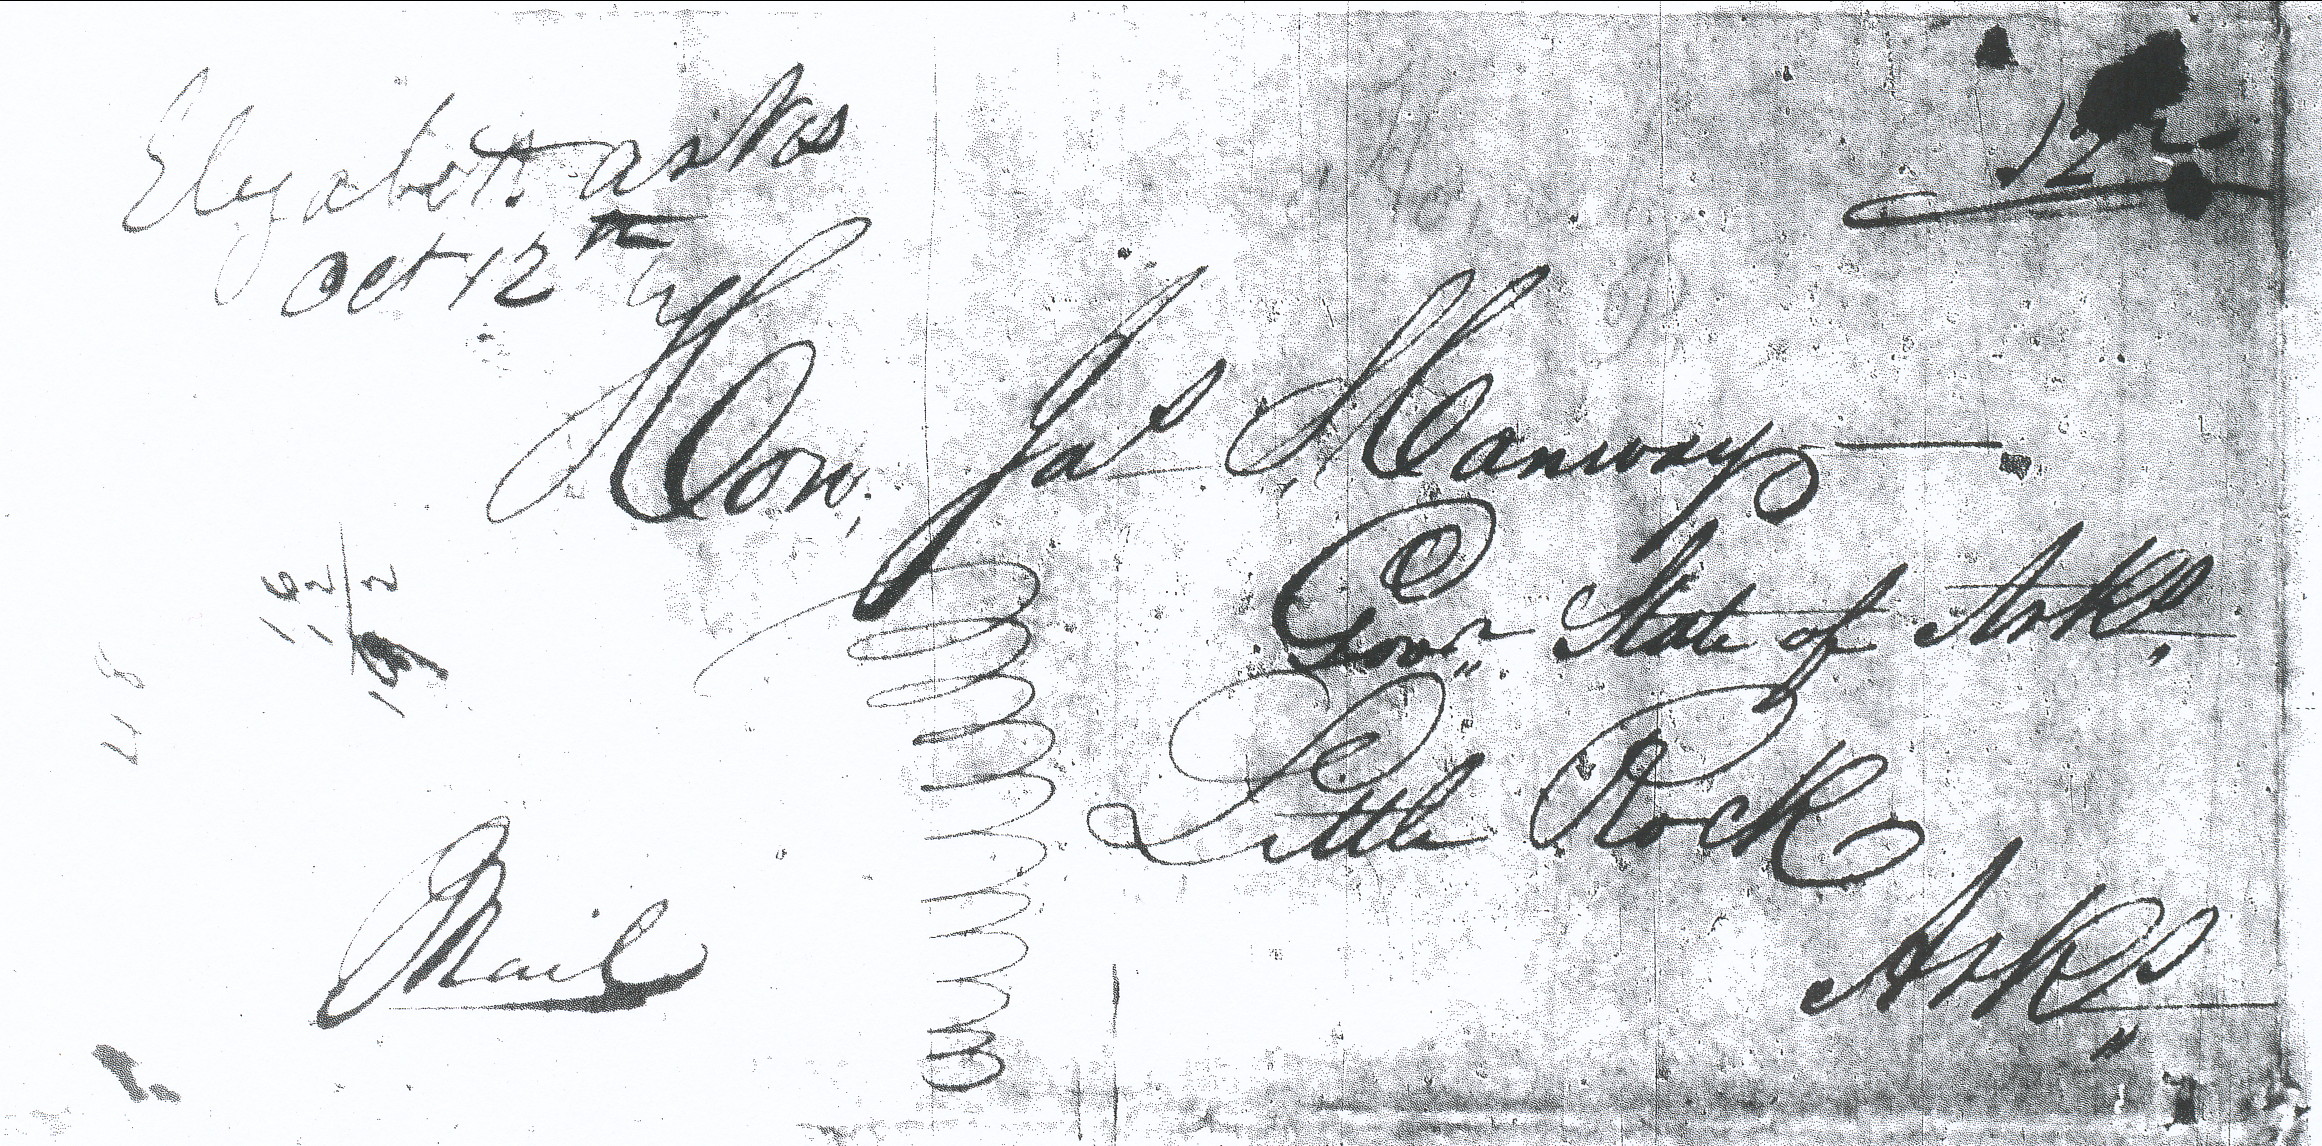 Elizabeth arks
Oct 12th
12
Hon. Jas S. Conway
Govr. State of Arks
Little Rock
Arks
Mail